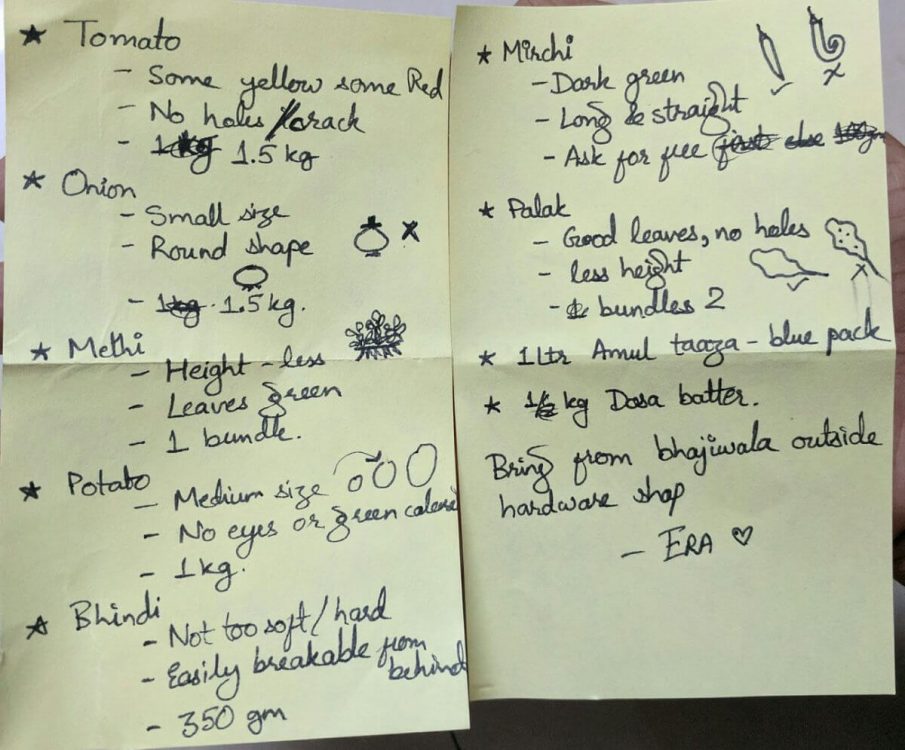 ★ Tomato
- Some yellow some Red
- No holes/crack
- 1kg 1.5 kg
★ Onion
- Small size
- Round shape
- 1kg. 1.5 kg.
★ Methi
- Height - less
- Leaves green
- 1 bundle.
★ Potato
- Medium size
- No eyes or green colored
- 1kg.
★ Bhindi
- Not too soft/hard
- Easily breakable from
behind
- 350 gm
★ Mirchi
- Dark green
- Long & straight
- Ask for free (first else 100gm
★ Palak
- Good leaves, no holes
- less height
- bundles 2
★ 1 Ltr Amul taaza - blue pack
★ kg Dosa batter.
Bring from bhajiwala outside
hardware shop
- ERA ♡